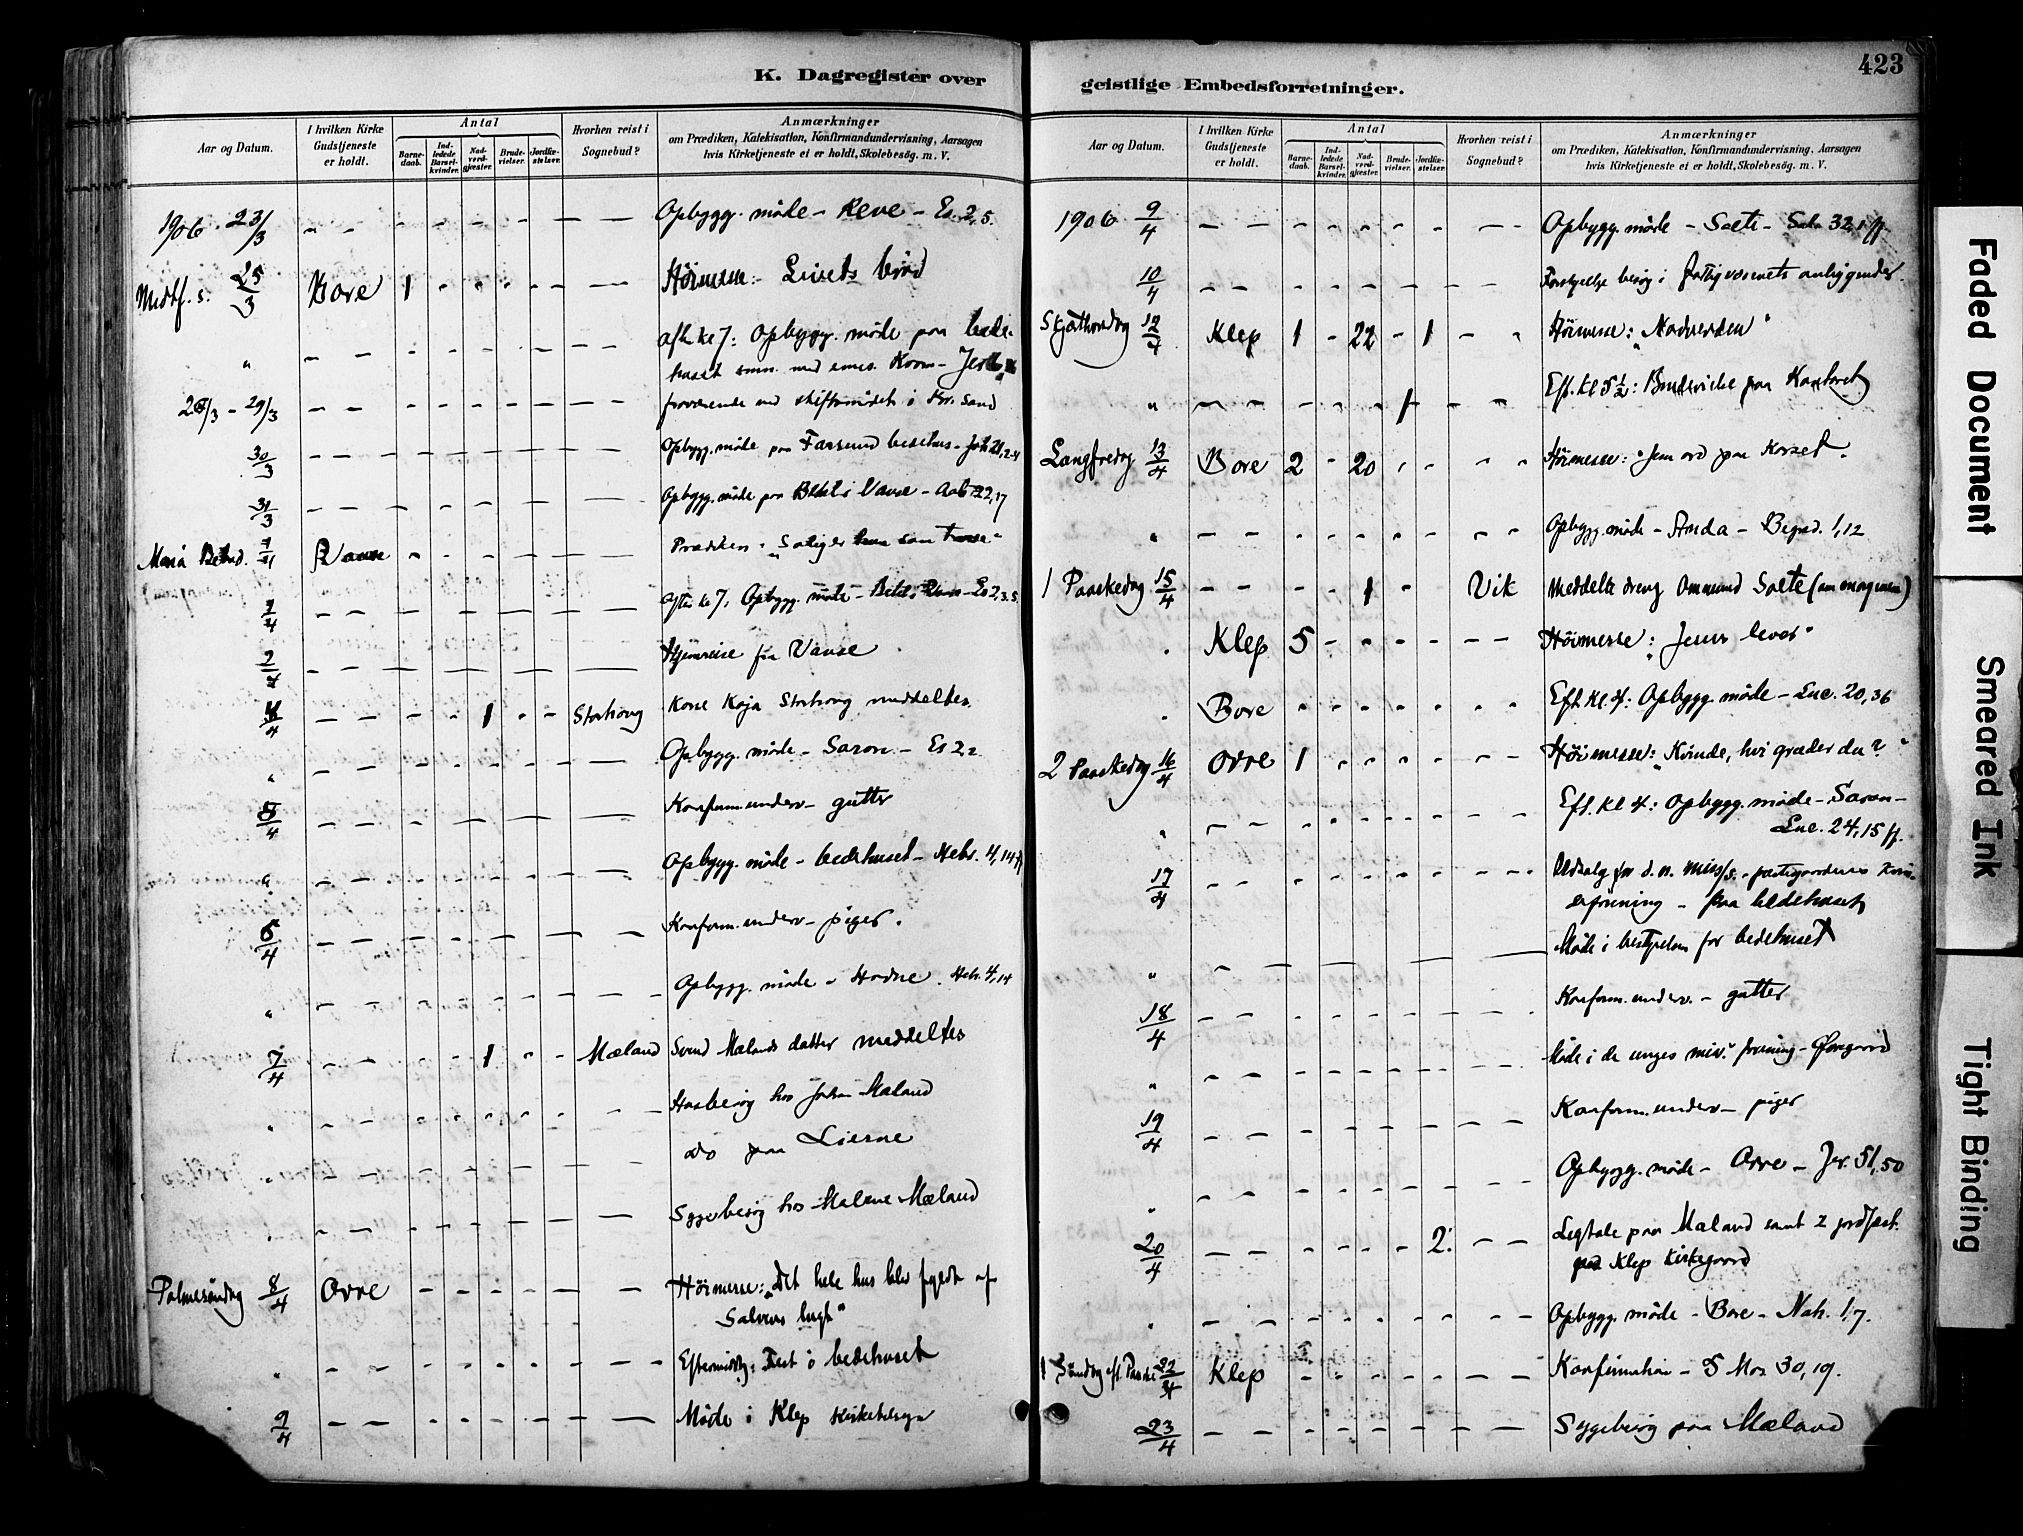 K. Dagregister over
Aar og Datum.
I hvilken Kirke Gudstjeneste er holdt.
Antal
Barne-daab.
Ind-ledede Barsel-kvinder.
Nad-verd-gjæster.
Brude-vielser.
Jordfæ-stelser.
Hvorhen reist i Sognebud?
Anmærkninger
om Prædiken, Katekisation, Konfirmandundervisning, Aarsagen
hvis Kirketjeneste ei er holdt, Skolebesøg. m. V.
1906 23/3 Opbygg. møde - Reve - Es. 2,5.
Midtf. s. 25/3 Bore 1 Høimesse: Livets brød
" Aften kl 7: Opbygg. møde paa bede-
huset
26/3 - 29/3 fraværende ved stiftsmødet i Kr. sand
30/3 Opbygg. møde paa Farsund bedehus - Joh 21,2-4
31/3 Opbygg. møde paa Betel i Vanse - 22,17
Maria Bebud. 1/4 Vanse Prædiken: "Salig er
1/4 Aften kl 7: Opbygg. møde - Betel i Vanse - Es 2,3.5.
2/4 Hjemreise fra Vanse
4/4 1 Storhoug Kone Kaja Storhoug meddeltes
" Opbygg. møde - Saron - Es 2
5/4 Konfirm. underv - gutter
" Opbygg. møde - bedehuset - Hebr. 4,14 ff
6/4 Konfirm. underv - piger.
" Opbygg. møde - Hodne. Hebr. 4,14
7/4 1 Mæland Svend Mælands datter meddeltes
" Husbesøg hos Johan Mæland
do paa Lierne
" Sygebesøg hos Malene Mæland
Palmesøndag 8/4 Orre Høimesse: "Det hele hus blev fyldt af
Salvens lugt"
" Eftermiddg: Fest i bedehuset
9/4 Møde i Klep kirketilsyn
geistlige Embedsforretninger.
423
Aar og Datum.
I hvilken Kirke Gudstjeneste er holdt.
Antal
Barne-daab.
Ind-ledede Barsel-kvinder.
Nad-verd-gjæster.
Brude-vielser.
Jordfæ-stelser.
Hvorhen reist i Sognebud?
Anmærkninger
om Prædiken, Katekisation, Konfirmandundervisning, Aarsagen
hvis Kirketjeneste ei er holdt, Skolebesøg. m. V.
1906 9/4 Opbygg. møde - Sælte - Salm 32,1 ff
10/4 besøg i fattigvæsenets anliggender
Skjærthorsdag 12/4 Klep 1 22 1 Høimesse: "Nadverden"
" 1 Eft. Kl 5½: Brudevielse paa Kontoret
Langfredag 13/4 Bore 2 20 Høimesse: "Jesu ord paa Korset".
" Opbygg. møde - Anda - 1,12
1 Paaskedag 15/4 1 Vik meddelte dreng Ommund Sælte
" Klep 5 Høimesse: "Jesus lever"
" Bore Eft. kl. 4: Opbygg. møde - Luc. 20,36
2 Paaskedag 16/4 Orre 1 Høimesse: "Kvinde, hvi græder du?"
" Eft. kl 4: Opbygg. møde - Saron -
Luc. 24,15 ff.
17/4 Udsalg for d. n. miss/s. - præstegaardens Kvin-
deforening - paa bedehuset
" Møde i bestyrelsen for bedehuset
18/4 Konfirm. underv. - gutter
" Møde i de unges mis. forening -
19/4 Konfirm. underv - piger
" Opbygg. møde - Orre - Jer. 51,50
20/4 2. Ligtale paa Mæland samt 2 jordfæst.
paa Klep Kirkegaard
" Opbygg. møde - Bore - Nah. 1,7.
1 Søndag eft. Paaske 22/4 Klep Konfirmation - 5 Mos 30,19.
23/4 Sygebesøg paa Mæland
Faded Document
Smeared Ink
Tight Binding